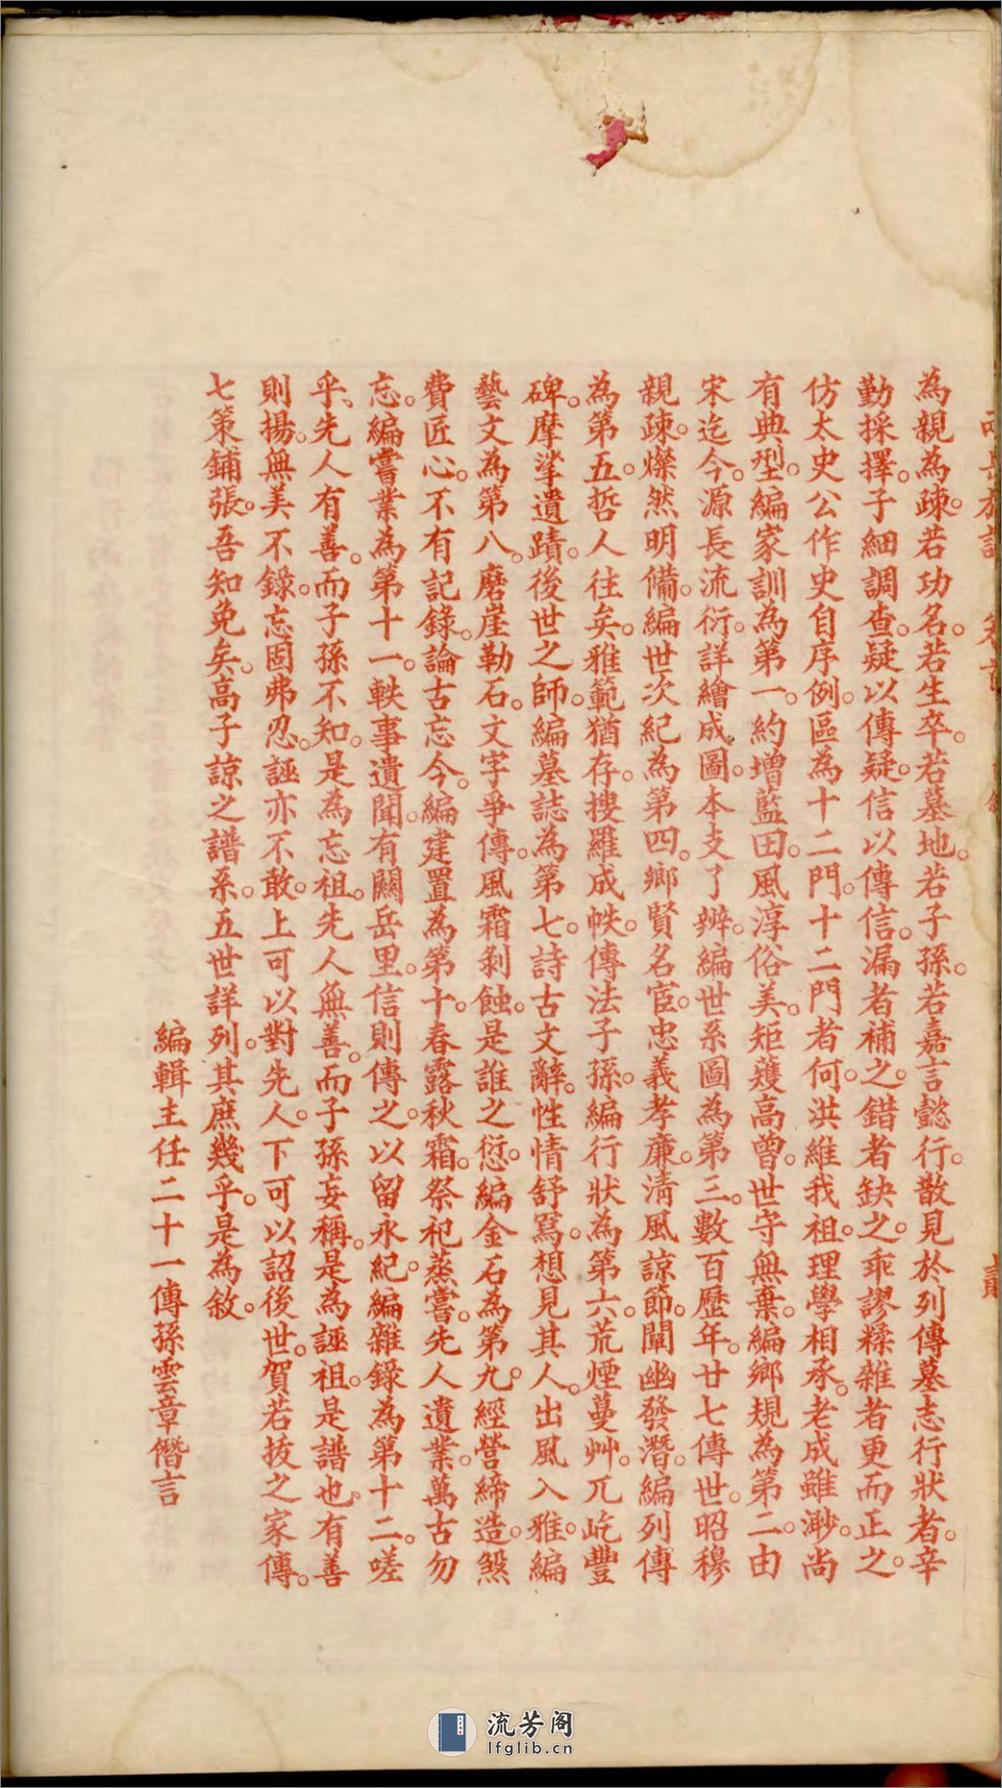 為親為疎。若功名。若生卒。若墓地。若子孫。若嘉言懿行。散見於列傳墓志行狀者。辛
勤採擇。子細調查。疑以傳疑。信以傳信。漏者補之。錯者缺之。乖謬糅雜者更而正之。
仿太史公作史自序例。區為十二門。十二門者何。洪維我祖。理學相承。老成雖渺。尚
有典型。編家訓為第一。約增藍田。風淳俗美。矩矱高曾。世守無棄。編鄉規為第二。由
宋迄今。源長流衍。詳繪成圖。本支了辨。編世系圖為第三。數百歷年。廿七傳世。昭穆
親疎。燦然明備。編世次紀為第四。鄉賢名宦。忠義孝廉。清風諒節。闡幽發潛。編列傳
為第五。哲人往矣。雅範猶存。搜羅成帙。傳法子孫。編行狀為第六。荒煙蔓艸。兀屹豐
碑。摩挲遺蹟。後世之師。編墓誌為第七。詩古文辭。性情舒寫。想見其人。出風入雅。編
藝文為第八。磨崖勒石。文字爭傳。風霜剝蝕。是誰之愆。編金石為第九。經營締造。煞
費匠心。不有記錄。論古忘今。編建置為第十。春露秋霜。祭祀蒸嘗。先人遺業。萬古勿
忘。編嘗業為第十一。軼事遺聞。有關岳里。信則傳之。以留永紀。編雜錄為第十二。嗟
乎、先人有善。而子孫不知。是為忘祖。先人無善。而子孫妄稱。是為誣祖。是譜也。有善
則揚。無美不錄。忘固弗忍。誣亦不敢。上可以對先人。下可以詔後世。賀若拔之家傳。
七策鋪張。吾知免矣。高子諒之譜系。五世詳列。其庶幾乎。是為敘。
編輯主任二十一傳孫雲章僭言
流芳阁
lfglib.cn